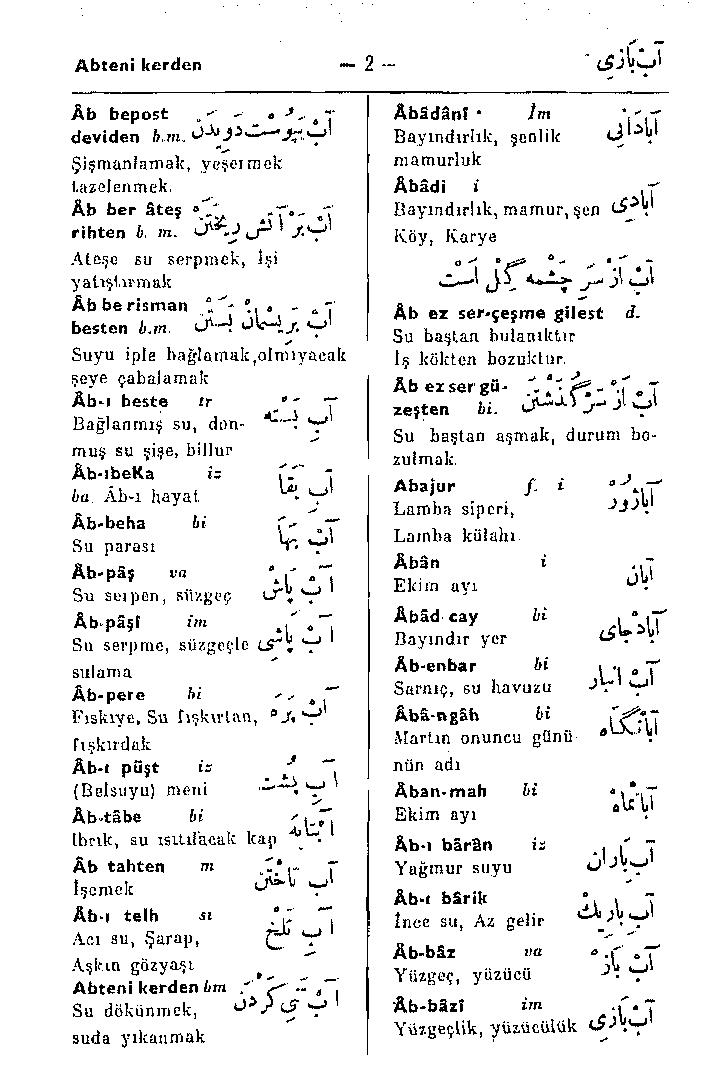 Abteni kerden — 2 — آب بازی
Âb bepost
deviden b.m. آب بپوست دویدن
Şişmanlamak, yeşermek
tazelenmek.
Âb ber âteş
rihten b. m. آب بر آتش ریختن
Ateşe su serpmek, İşi
yatıştırmak
Âb be risman
besten b.m. آب بریسمان بستن
Suyu iple bağlamak,olmıyacak
şeye çabalamak
Âb-ı beste tr آب بسته
Bağlanmış su, don-
muş su şişe, billur
Âb-ıbeKa iz آب بقا
ba. Âb-ı hayat
Âb-beha bi آب بها
Su parası
Âb-pâş va آب پاش
Su serpen, süzgeç
Âb-pâşî im آب پاشی
Su serpme, süzgeçle
sulama
Âb-pere bi آب پره
Fıskıye, Su fışkırtan,
fışkırdak
Âb-ı püşt iz آب پشت
(Belsuyu) meni
Âb-tâbe bi آبتابه
İbrik, su ısıtılacak kap
Âb tahten m آب تاختن
İşemek
Âb-ı telh sı آب تلخ
Acı su, Şarap,
Aşkın gözyaşı
Abteni kerden bm آب تنی کردن
Su dökünmek,
suda yıkanmak
Âbâdânî İm آبادانی
Bayındırlık, şenlik
mamurluk
Âbâdi i آبادی
Bayındırlık, mamur, şen
Köy, Karye
آب از سر چشمه گل است
Âb ez ser-çeşme gilest d.
Su baştan bulanıktır
İş kökten bozuktur.
Âb ez ser gü-
zeşten bi. آب از سر گذشتن
Su baştan aşmak, durum bo-
zulmak.
Abajur f. i آباژور
Lamba siperi,
Lamba külahı
Âbân i آبان
Ekim ayı
Âbâd cay bi آباد جای
Bayındır yer
Âb-enbar bi آب انبار
Sarnıç, su havuzu
Âbâ-ngâh bi آبانگاه
Martın onuncu günü-
nün adı
Âban-mah bi آبانماه
Ekim ayı
Âb-ı bârân iz آب باران
Yağmur suyu
Âb-ı bârik آب باریک
İnce su, Az gelir
Âb-bâz va آب باز
Yüzgeç, yüzücü
Âb-bâzî im آب بازی
Yüzgeçlik, yüzücülük